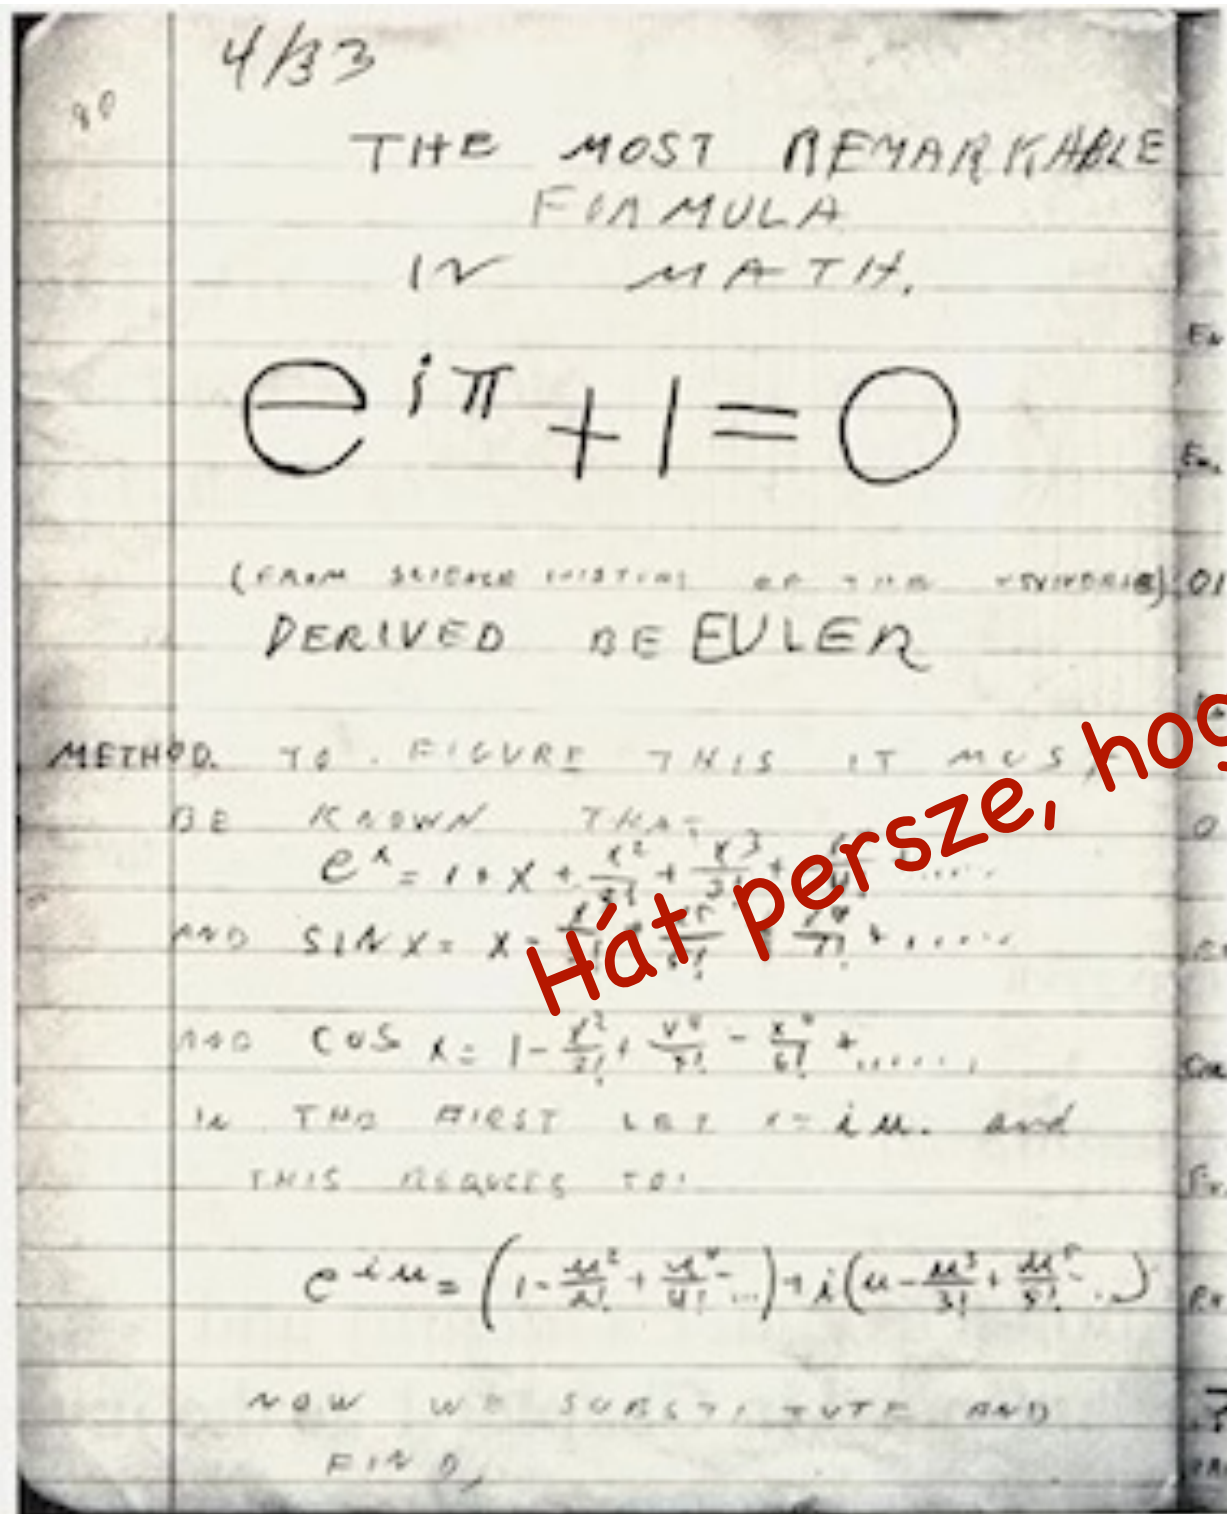 4/33
80
THE MOST REMARKABLE
FORMULA
IN MATH.
e^{iπ} + 1 = 0
(FROM SCIENCE HISTORY OF THE
DERIVED BE EULER
METHOD. TO FIGURE THIS IT MUS
BE KNOWN THAT
e^x = 1 + x + x²/2! + x³/3! +
AND SIN x = x -
AND COS x = 1 - x²/2! + x⁴/
IN THE FIRST LET x = iu. and
THIS REDUCES TO:
e^{iu} = (1 - u²/2! + u⁴/4! - ...) + i(u - u³/3! + u⁵/5! - ...)
NOW WE SUBSTITUTE AND
FIND,
Hát persze, hog